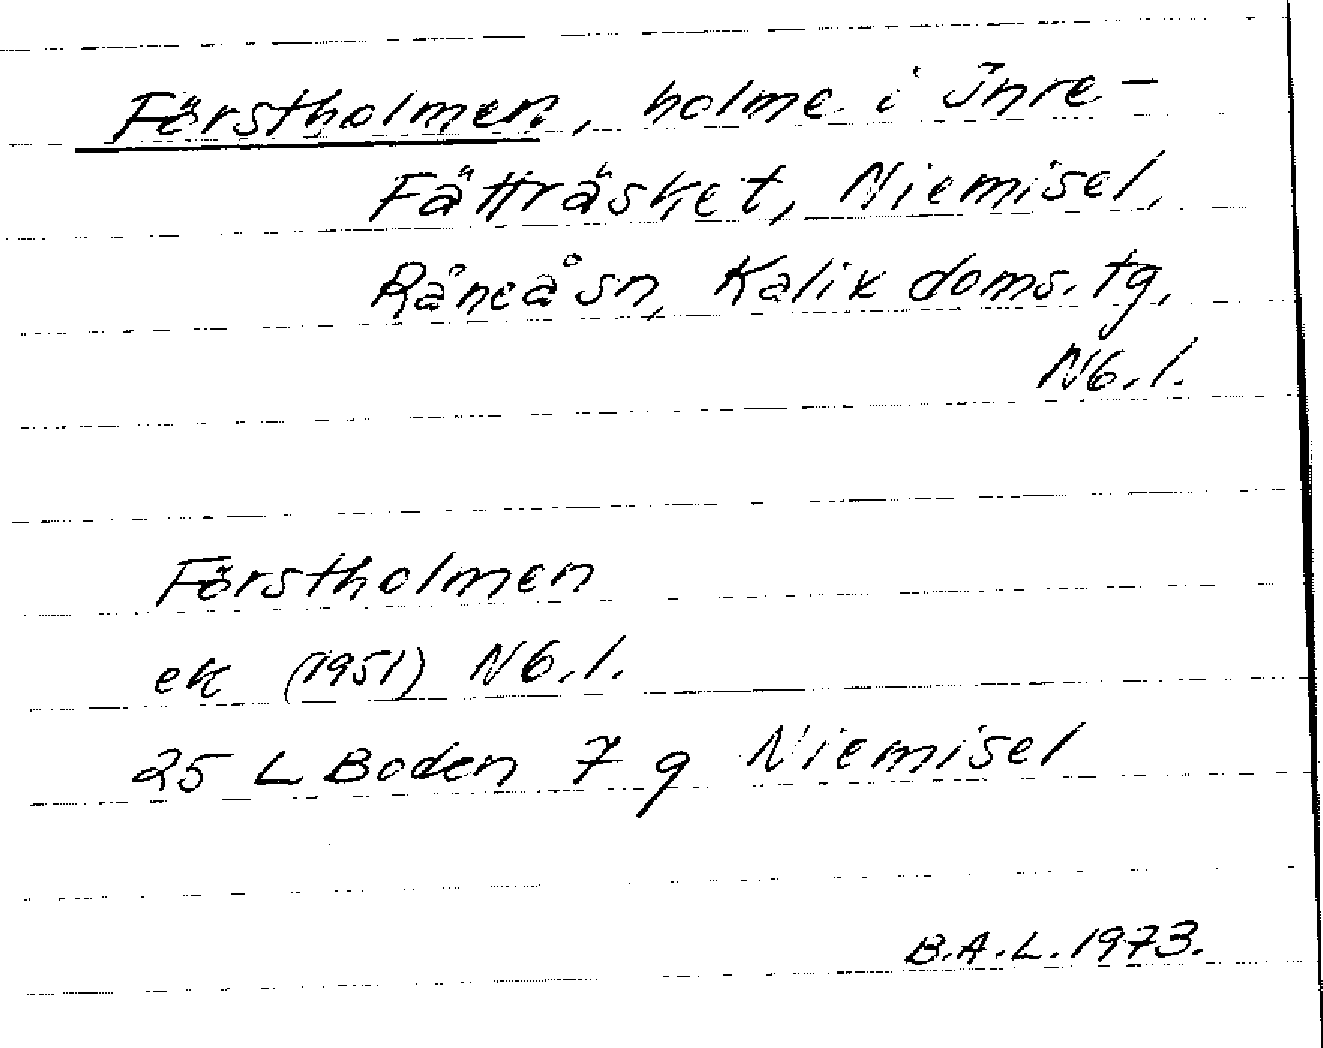 Förstholmen, holme i Inre-
Fätträsket, Niemisel,
Råneå sn, Kalix doms. tg,
Nb. l.
Förstholmen
ek (1951) Nb. l.
25 L Boden 7 g Niemisel
B.A.L. 1973.